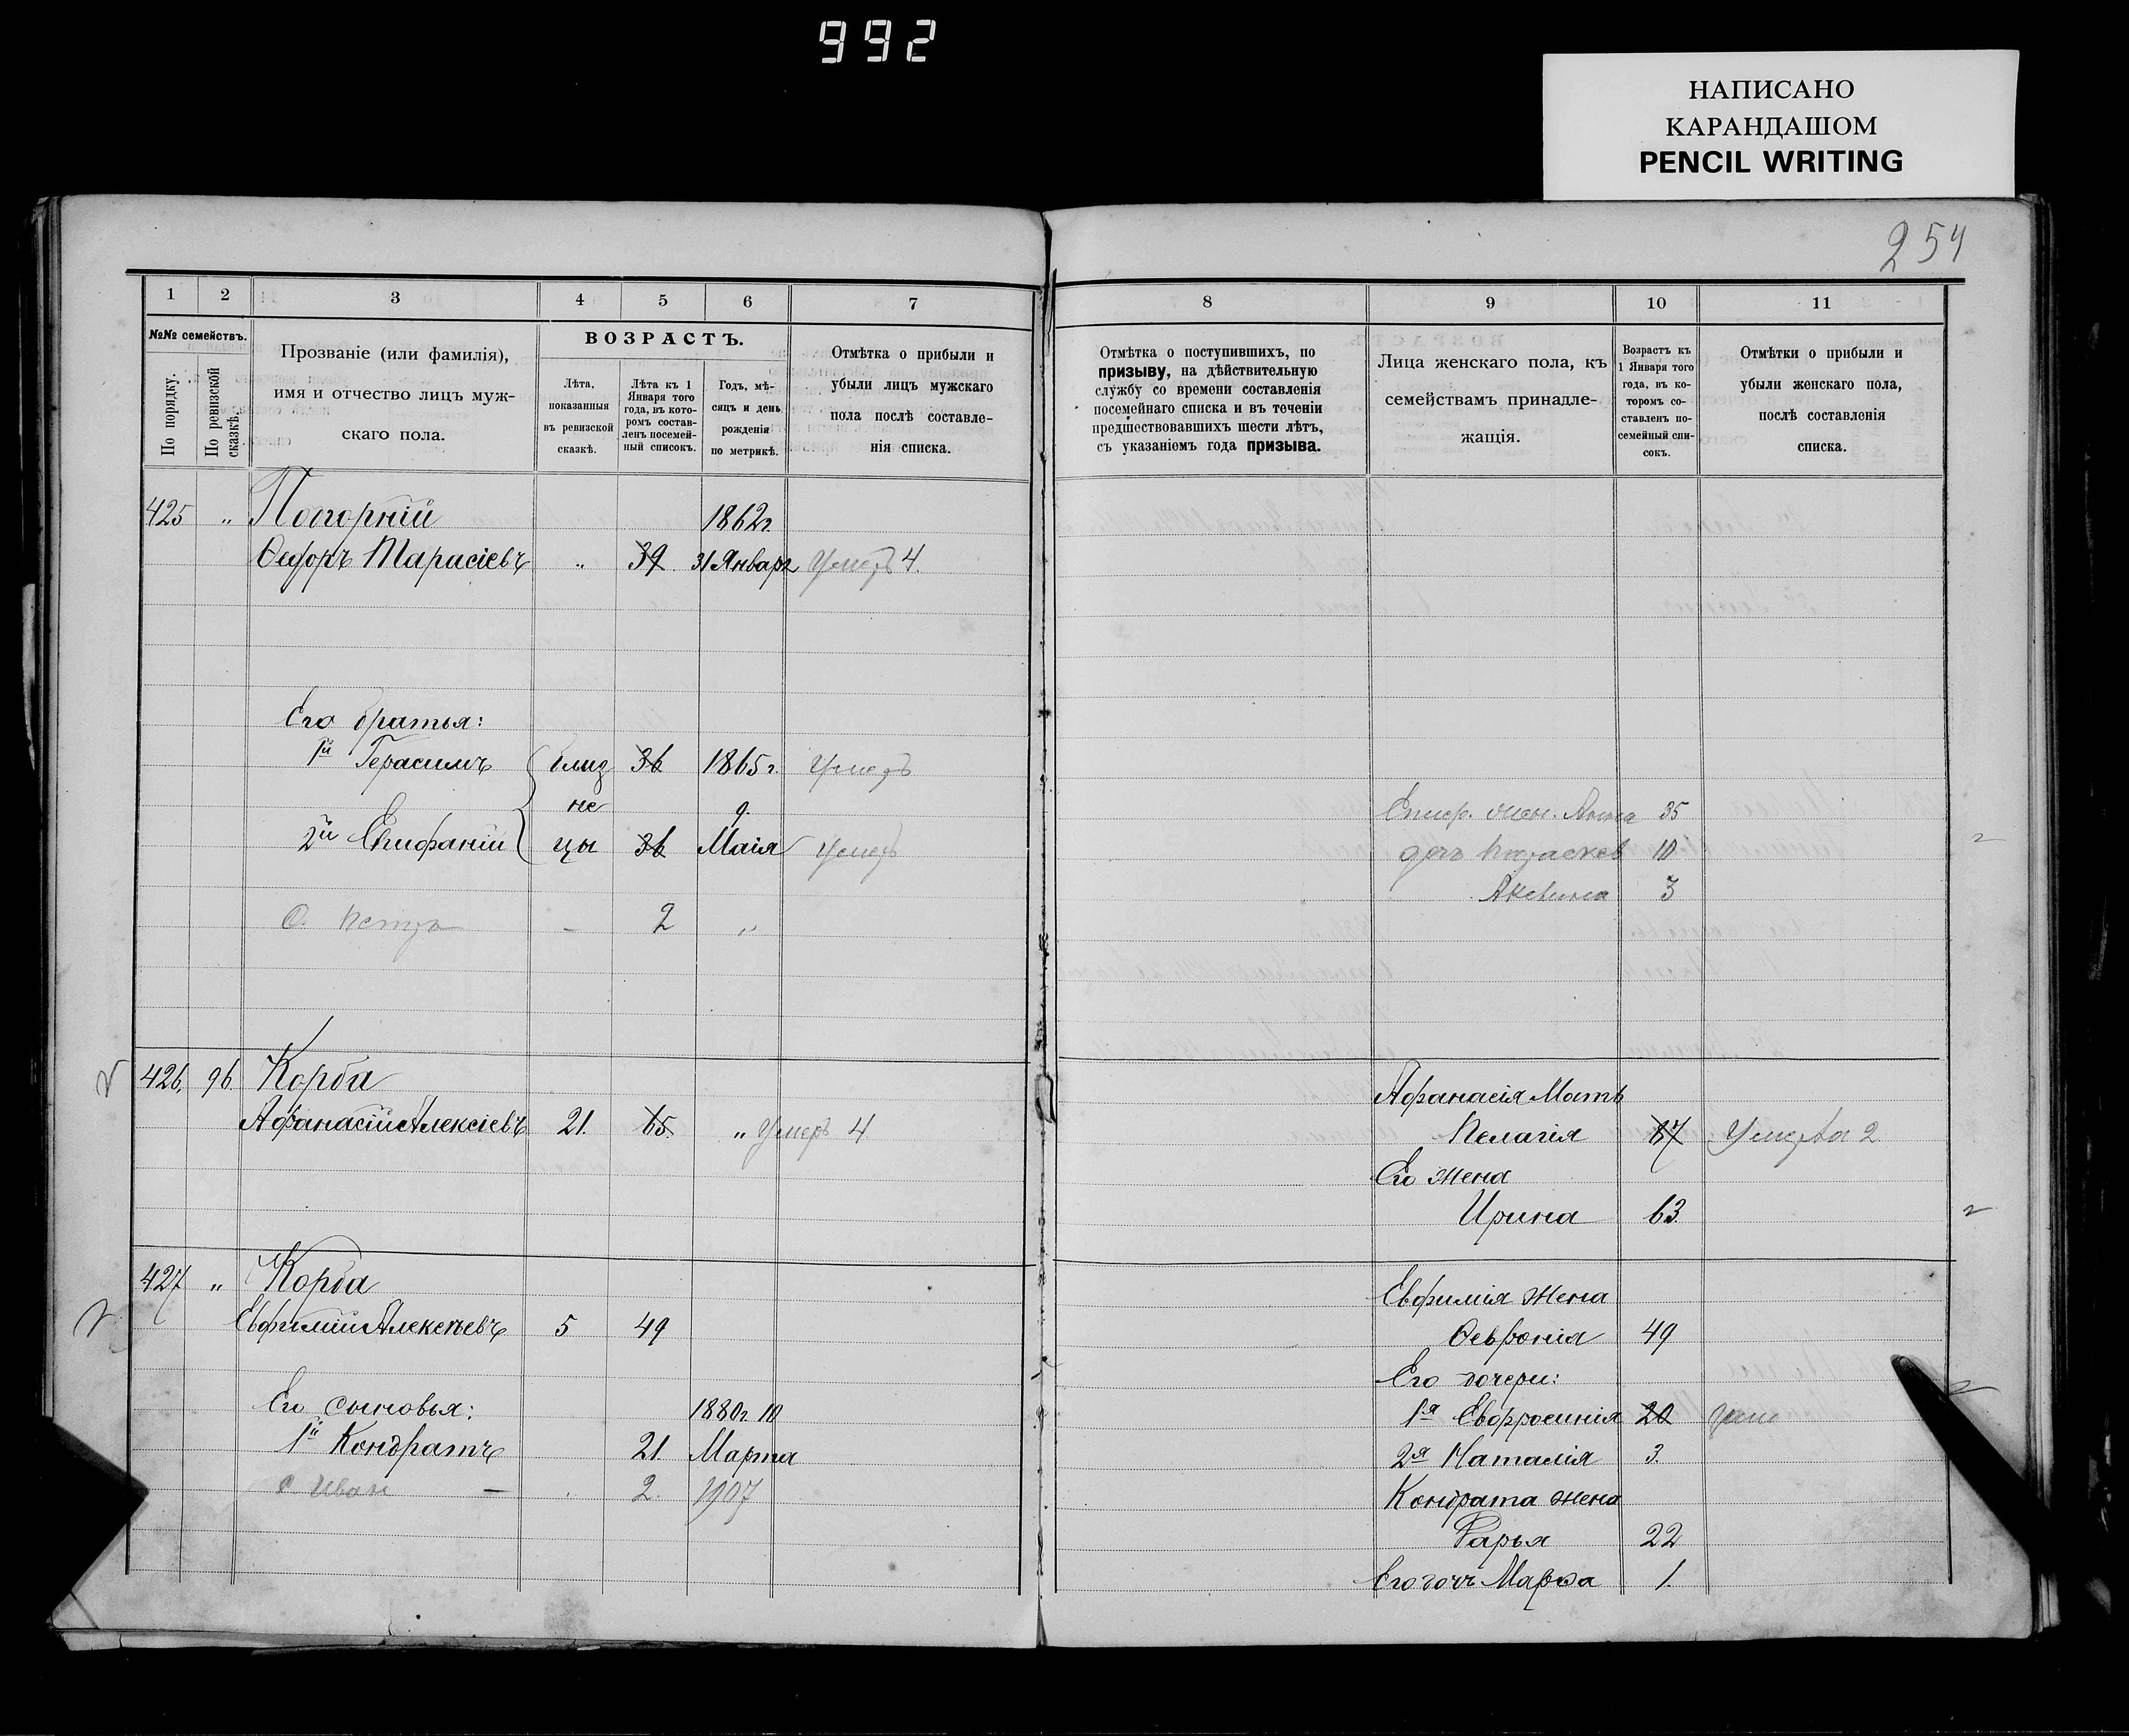 992
НАПИСАНО
КАРАНДАШОМ
PENCIL WRITING
254
1 2 3 4 5 6 7
№№ семействъ.
По порядку.
По ревизской сказкѣ.
Прозваніе (или фамилія),
имя и отчество лицъ муж-
скаго пола.
ВОЗРАСТЪ.
Лѣта,
показанныя
въ ревизской
сказкѣ.
Лѣта къ 1
Января того
года, въ кото-
ромъ состав-
ленъ посемей-
ный списокъ.
Годъ, мѣ-
сяцъ и день
рожденія
по метрикѣ.
Отмѣтка о прибыли и
убыли лицъ мужскаго
пола послѣ составле-
нія списка.
425 „ Погорній 1862г.
Ѳедоръ Тарасіевъ „ 39. 31 Января Умеръ 4.
Его братья:
1й Герасимъ близ 36 1865 г. Умеръ
не 9.
2й Епифаній цы 36 Маія Умеръ
С. Петръ - 2 „
426. 96. Корба
Афанасій Алексіевъ 21. 65. „ Умеръ 4
427 „ Корба
Евфимій Алексѣевъ 5 49
Его сыновья: 1880г. 10
1й Кондратъ 21. Марта
с. Иван — 2. 1907
8 9 10 11
Отмѣтка о поступившихъ, по
призыву, на дѣйствительную
службу со времени составленія
посемейнаго списка и въ теченіи
предшествовавшихъ шести лѣтъ,
съ указаніемъ года призыва.
Лица женскаго пола, къ
семействамъ принадле-
жащія.
Возрастъ къ
1 Января того
года, въ ко-
торомъ со-
ставленъ по-
семейный спи-
сокъ.
Отмѣтки о прибыли и
убыли женскаго пола,
послѣ составленія
списка.
Епиф. жен. Анна 35
дочь Параскев 10
Аксинья 3
Афанасія Мать
Пелагія 87 Умерла 2
Его жена
Ирина 63.
Евфимія жена
Ѳевронія 49
Его дочери:
1я Евфросинія 20
2я Наталія 3.
Кондрата жена
Дарья 22
Его дочь Марѳа 1.